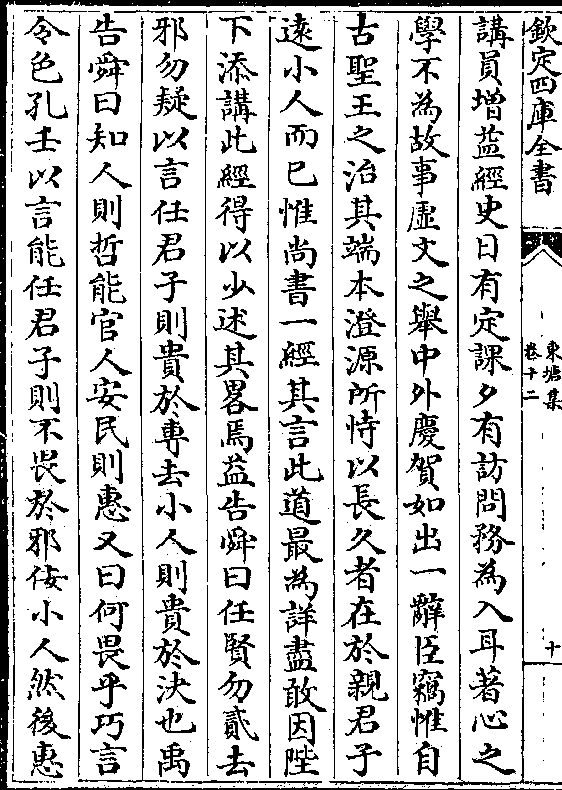 欽定四庫全書
東塘集
卷十二
十
講員增益經史日有定課夕有訪問務為入耳著心之
學不為故事虛文之舉中外慶賀如出一辭臣竊惟自
古聖王之治其端本澄源所恃以長久者在於親君子
逺小人而已惟尚書一經其言此道最為詳盡敢因陛
下添講此經得以少述其畧焉益告舜曰任賢勿貳去
邪勿疑以言任君子則貴於専去小人則貴於決也禹
告舜曰知人則哲能官人安民則惠又曰何畏乎巧言
令色孔壬以言能任君子則不畏於邪佞小人然後惠